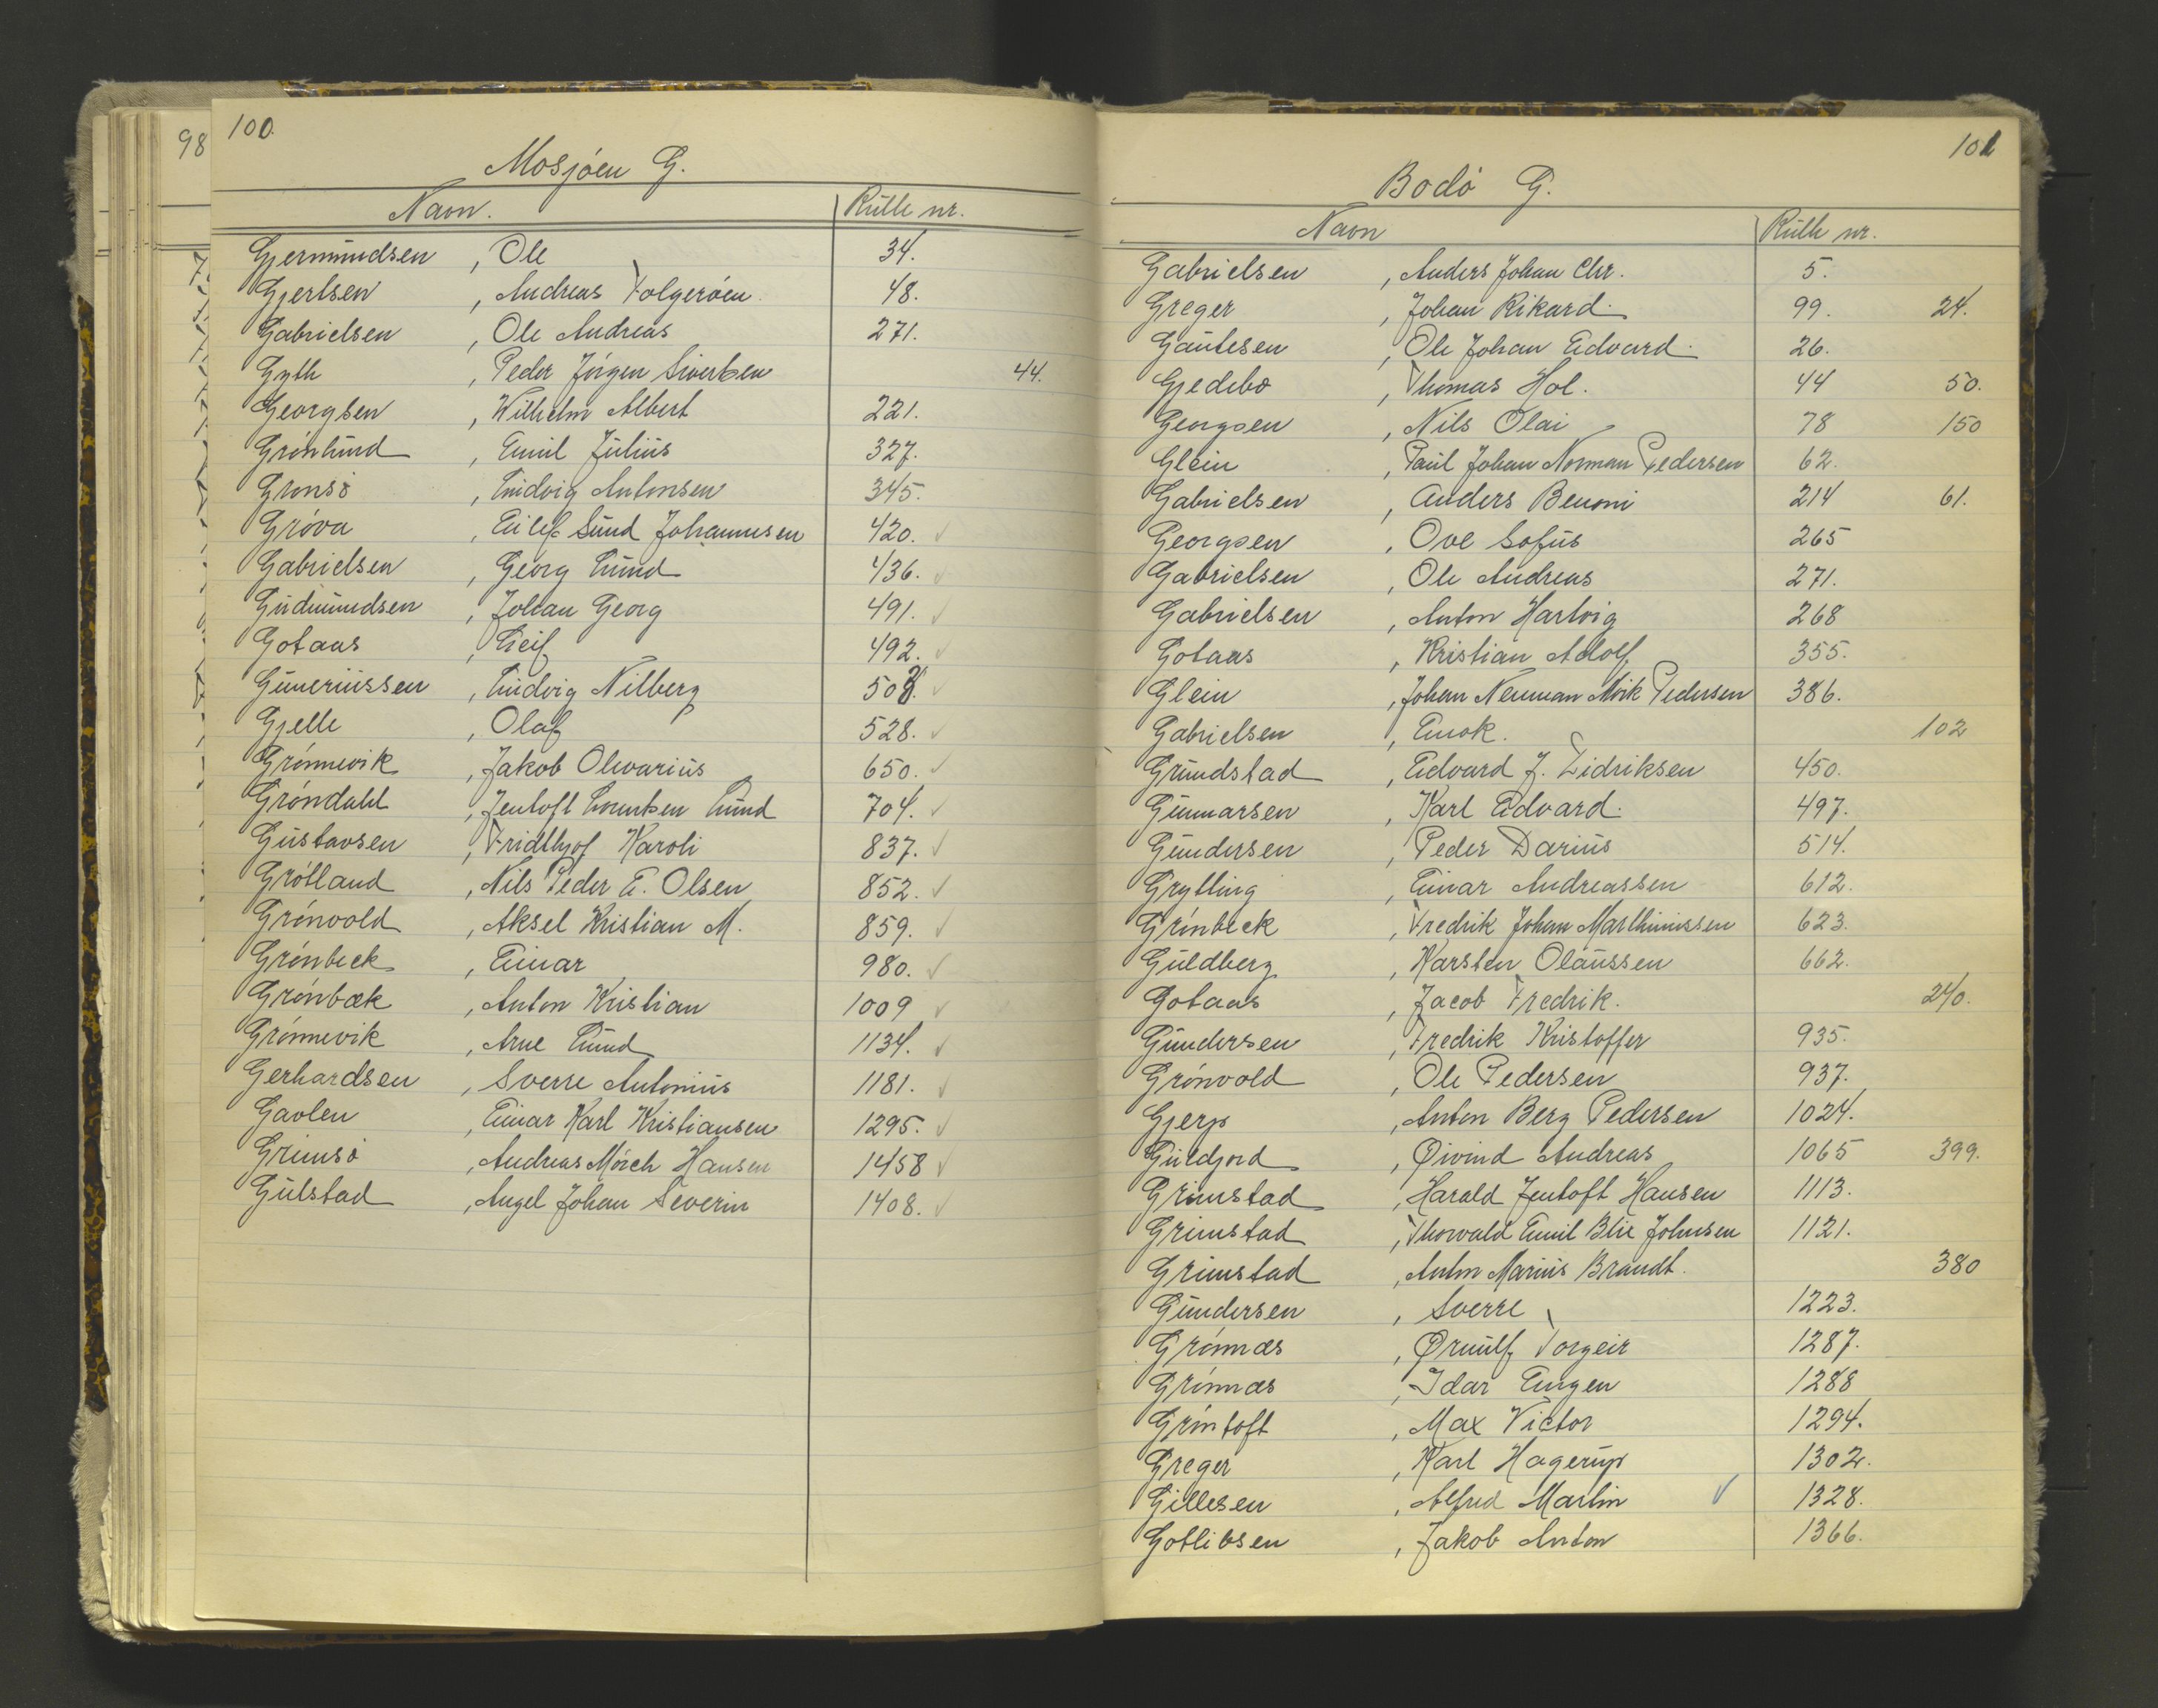 98
100.
Mosjøen G.
Navn. Rulle nr.
Gjermundsen, Ole 34.
Gjertsen, Andreas Folgerøen 48.
Gabrielsen, Ole Andreas 271.
Gyth, Peder Jørgen Sivertsen 44.
Georgsen, Wilhelm Albert 221.
Grønlund, Emil Julius 327.
Grønsø, Ludvig Antonsen 345.
Grøva, Eilef Sund Johannesen 420. ✓
Gabrielsen, Georg Lund 436. ✓
Gudmundsen, Johan Georg 491. ✓
Gotaas, Leif 492. ✓
Guneriussen, Ludvig Nilberg ✓
Gjelle, Olaf 528. ✓
Grønnevik, Jakob Olivarius 650. ✓
Grøndahl, Jentoft Lund 704. ✓
Gustavsen, Fridthjof Karoli 837. ✓
Grøtland, Nils Peder E. Olsen 852. ✓
Grønvold, Aksel Kristian M. 859. ✓
Grønbeck, Einar 980. ✓
Grønbæk, Anton Kristian 1009 ✓
Grønnevik, Arne Lund 1134. ✓
Gerhardsen, Sverre Antonius 1181. ✓
Gavlen, Einar Karl Kristiansen 1295. ✓
Grimsø, Andreas Mørch Hansen 1458 ✓
Gulstad, Angel Johan Severin 1408. ✓
101
Bodø G.
Navn Rulle nr.
Gabrielsen, Anders Johan Chr. 5.
Greger, Johan Rikard 99. 24.
Gautesen, Ole Johan Edvard 26.
Gjedebo, Thomas Hol. 44 50.
Georgsen, Nils Olai 78 150
Glein, Paul Johan Norman Pedersen 62.
Gabrielsen, Anders Benoni 214 61.
Georgsen, Ove Sofus 265
Gabrielsen, Ole Andreas 271.
Gabrielsen, Anton Hartvig 268
Gotaas, Kristian Adolf 355.
Glein, Johan Neuman Mørk Pedersen 386.
Gabrielsen, Enok. 102
Grundstad, Edvard J. Didriksen 450.
Gunnarsen, Karl Edvard. 497.
Gundersen, Peder Darius 514.
Grytting, Einar Andreassen 612.
Grønbeck, Fredrik Johan Marthinissen 623.
Guldberg, Karsten Olaussen 662.
Gotaas, Jacob Fredrik. 240.
Gundersen, Fredrik Kristoffer 935.
Grønvold, Ole Pedersen 937.
Gjerp, Anton Berg Pedersen 1024.
Guldjord, Øivind Andreas 1065 399.
Grimstad, Harald Jentoft Hansen 1113.
Grimstad, Thorvald Emil Blix Johnsen 1121.
Grimstad, Anton Marius Brandt. 380
Gundersen, Sverre 1223.
Grønnæs, Ørnulf Torgeir 1287.
Grønnæs, Idar Eugen 1288
Grøntoft, Max Victor 1294.
Greger, Karl Hagerup 1302.
Gillesen, Alfred Martin ✓ 1328.
Gotlibsen, Jakob Anton 1366.